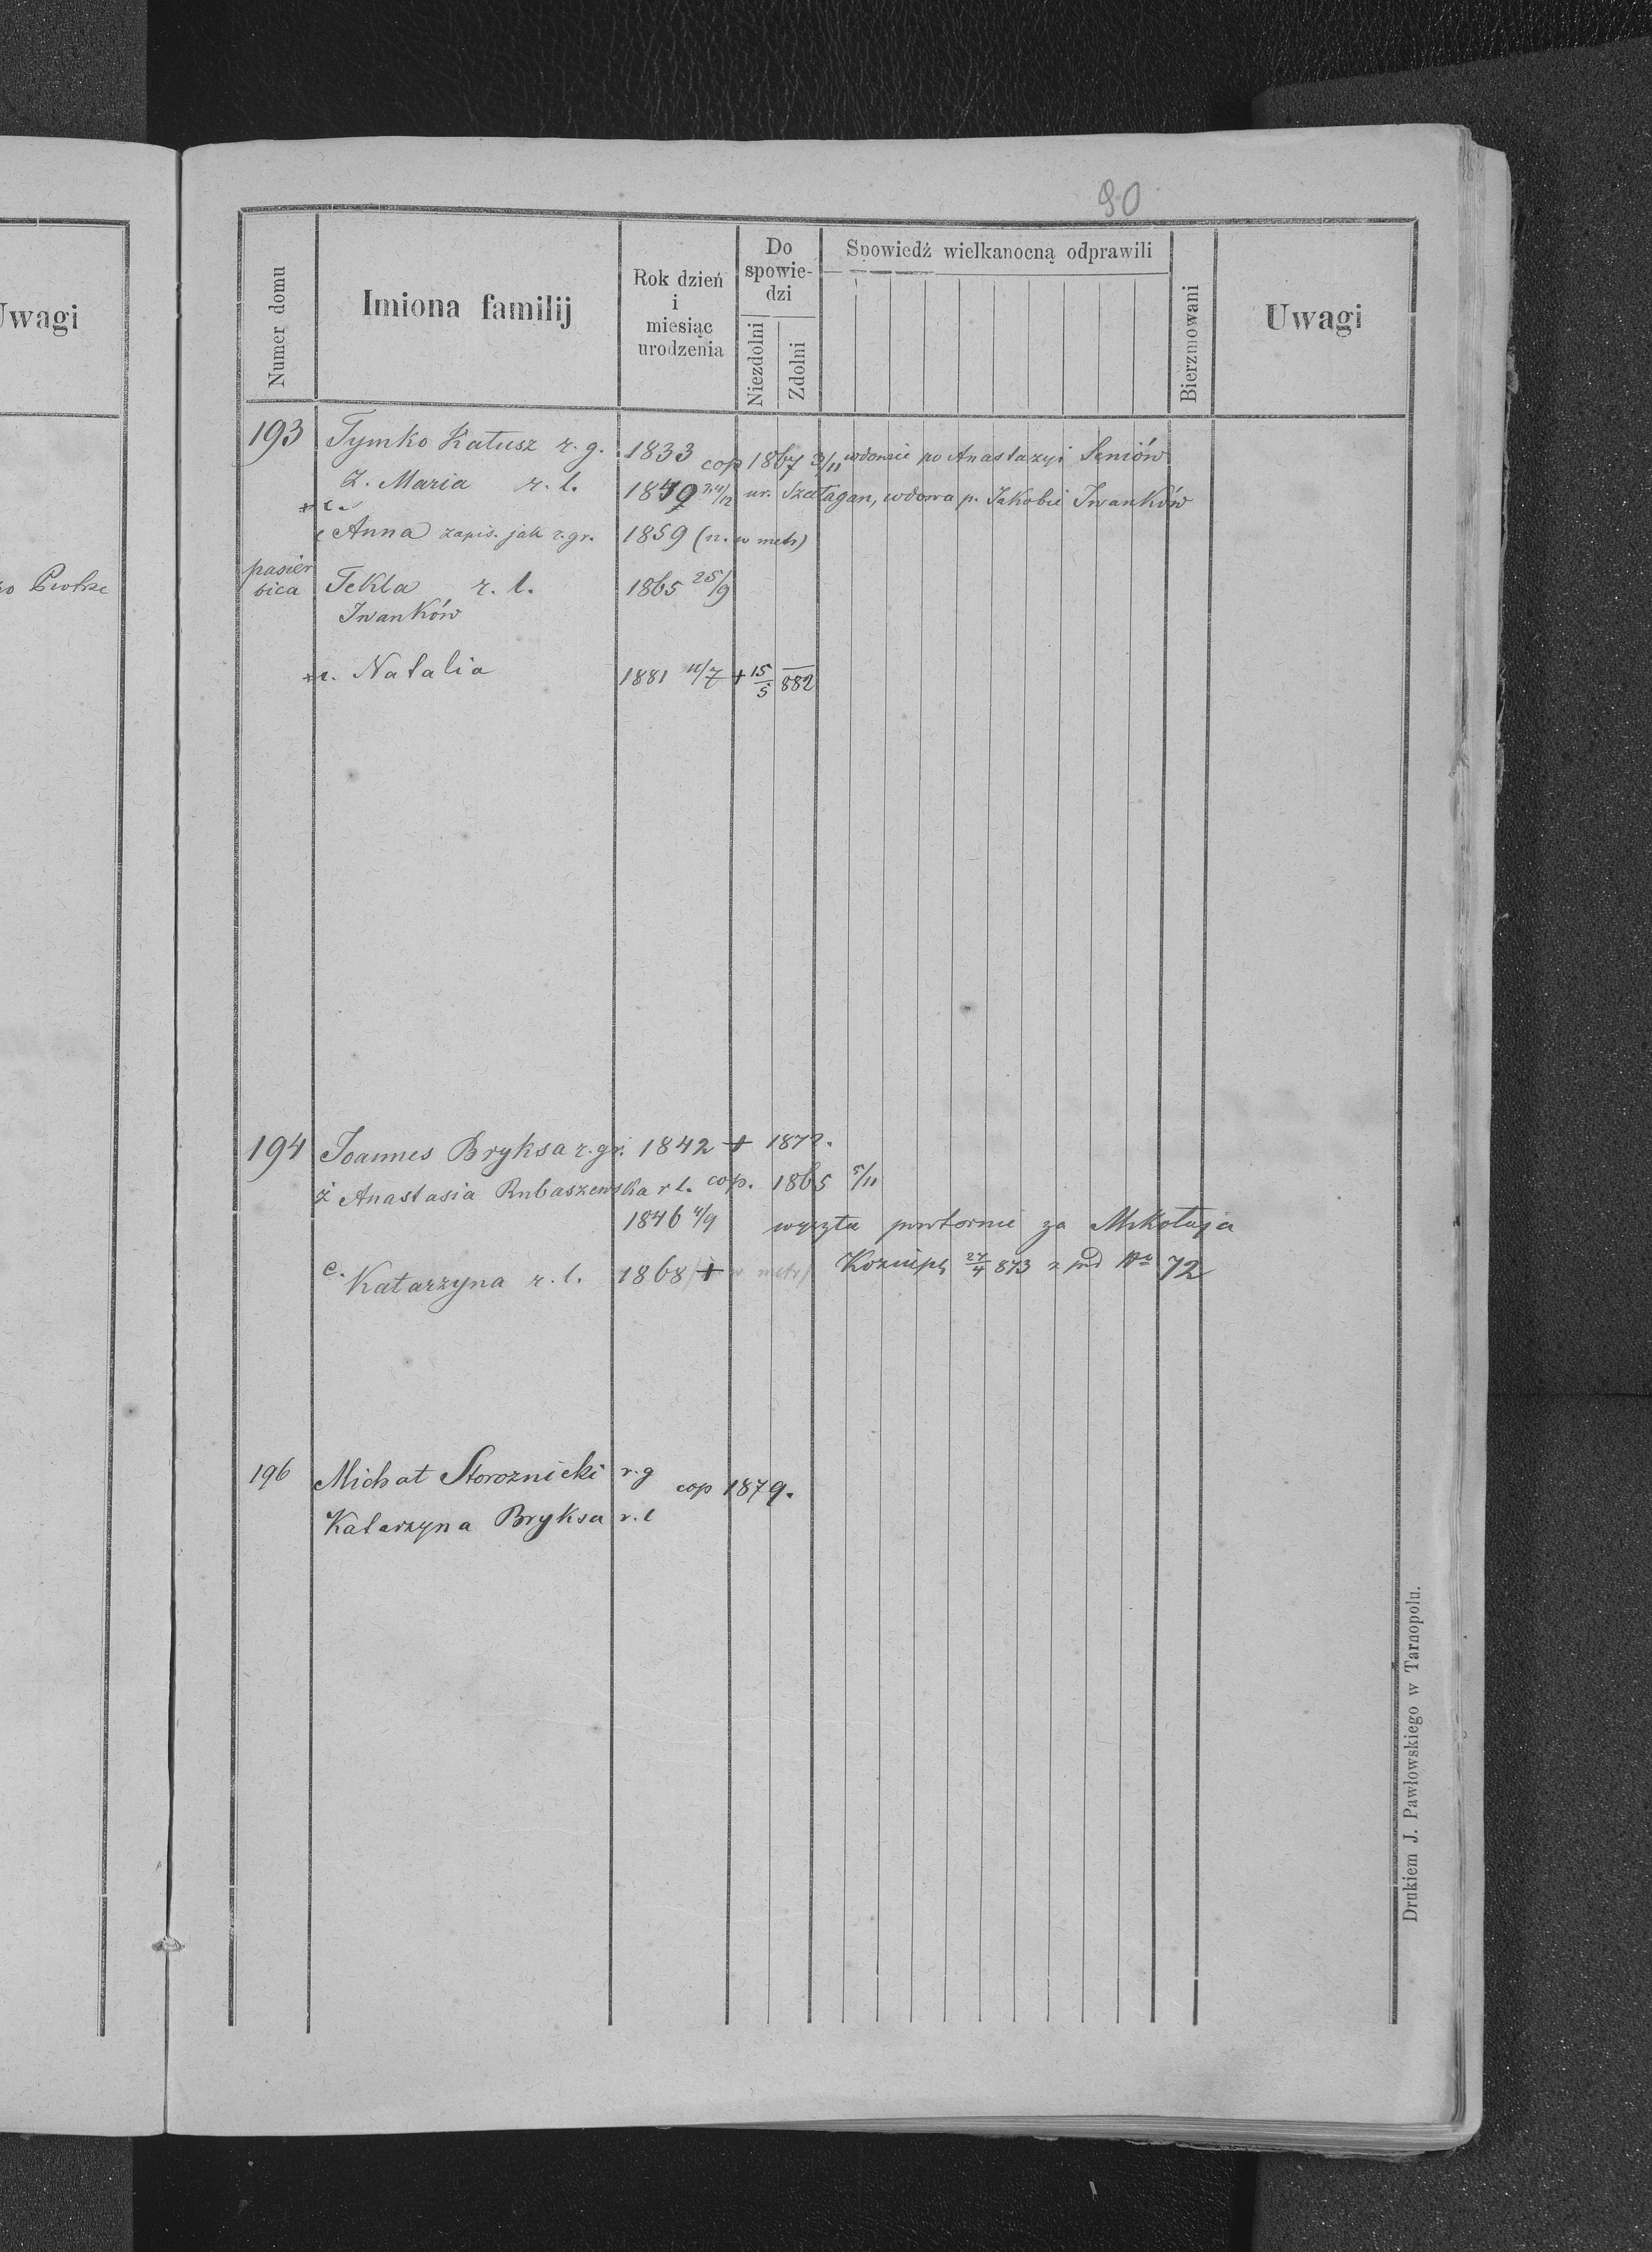 90
Uwagi
Numer domu
Imiona familij
Rok dzień
i
miesiąc
urodzenia
Do
spowie-
dzi
Niezdolni
Zdolni
Spowiedź wielkanocną odprawili
Bierzmowani
Uwagi
193 Tymko Katusz r. g. 1833 cop 1867 3/11 wdowiec po Anastazyi Seniów
Ż. Maria r. l. 1849 24/12 ur. Szałagan, wdowa p. Jakobie Iwanków
c Anna zapis. jak r. gr. 1859 (n. w metr)
pasier
bica Tekla r. l. 1865 25/9
Iwanków
+ c. Natalia 1881 11/7 + 15/5 882
194 Joannes Bryksa r. gr. 1842 + 1872.
ż Anastasia Rubaszewska r l. cop. 1865 5/11
1846 4/9 wyszła powtórnie za Mikołaja
c. Katarzyna r. l. 1868 + 27/4 873 z pod No 72
196 Michał Storoznicki r. g cop 1879.
Katarzyna Bryksa r. l
Drukiem J. Pawłowskiego w Tarnopolu.